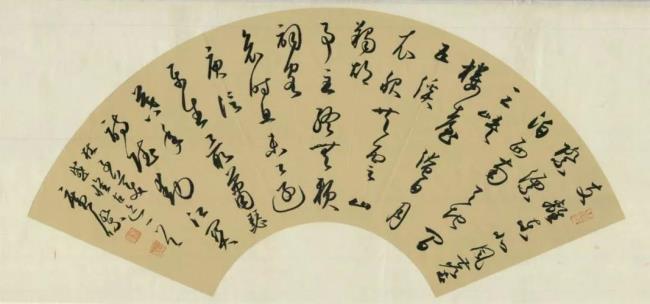 支離東北風塵
際漂
泊西南天地間
三峽
樓臺淹日月
五溪
衣服共雲山
羯胡
事主終無賴
詞客
哀時且未還
庾信
平生最蕭瑟
暮年
詩賦動江關
杜
詠懷古迹一首